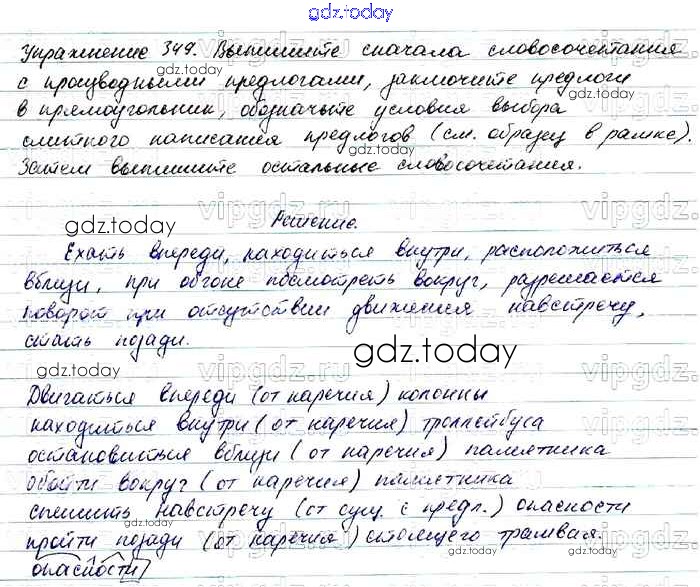 gdz.today
Упражнение 349. Выпишите сначала словосочетания
с производными предлогами, заключите предлоги
gdz.today
в прямоугольник, обозначьте условия выбора
слитного написания предлогов (см. образец в рамке).
Затем выпишите остальные словосочетания.
gdz.today
Решение.
Ехать впереди, находиться внутри, расположиться
вблизи, при обгоне посмотреть вокруг, разрешается
поворот при отсутствии движения навстречу,
стать позади.
gdz.today
gdz.today
Двигаться впереди (от наречия) колонны
находиться внутри (от наречия) троллейбуса
остановиться вблизи (от наречия) памятника
обойти вокруг (от наречия) памятника
спешить навстречу (от сущ. с предл.) опасности
пройти позади (от наречия) стоящего трамвая.
опасности
gdz.today
gdz.today